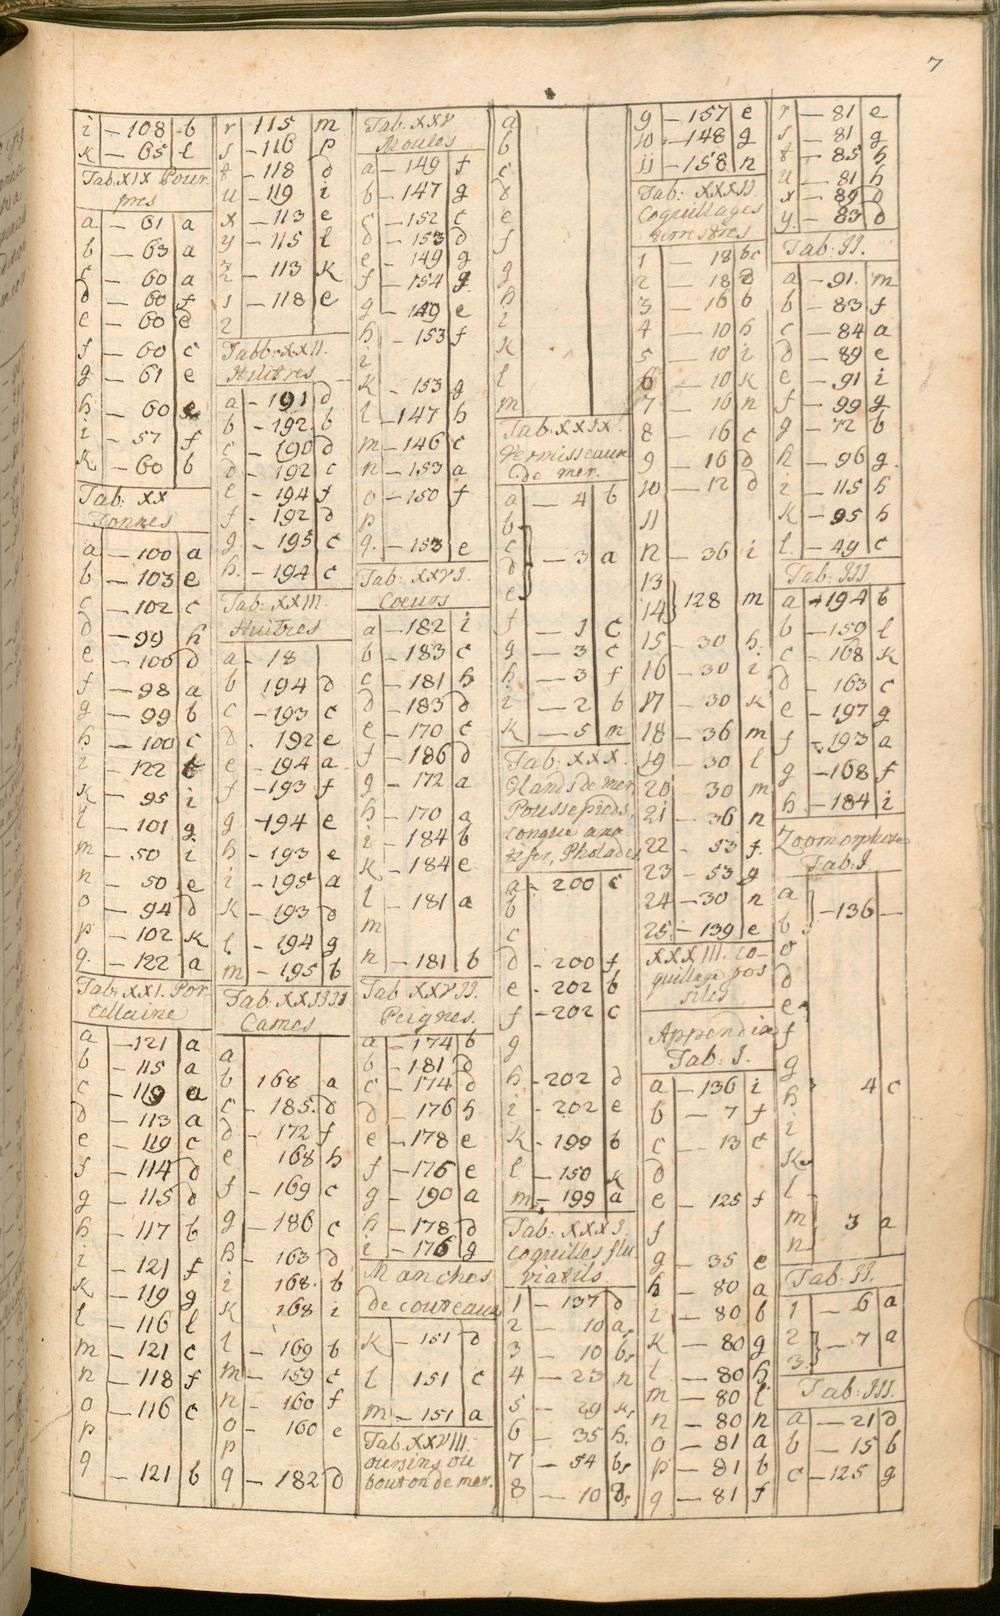 7
i – 108 b
k – 65 l
Tab. XIX Pour
pres
a – 61 a
b – 63 a
c – 60 a
d – 60 f
e – 60 d
f – 60 c
g – 61 e
h – 60
i – 57 f
k – 60 b
Tab: XX
Tonnes
a – 100 a
b – 103 e
c – 102 c
d – 99 h
e – 100 d
f – 98 a
g – 99 b
h – 100 c
i – 122
k – 95 i
l – 101 g
m – 50 i
n – 50 e
o – 94 d
p – 102 k
q. – 122 a
Tab. XXI. Por
cellaine
a – 121 a
b – 115 a
c – 119 a
d – 113 a
e – 119 c
f – 114 d
g – 115 d
h – 117 b
i – 121 f
k – 119 g
l – 116 l
m – 121 c
n – 118 f
o – 116 c
p
q – 121 b
r 115 m
s – 116 p
t – 118 d
u – 119 i
x – 113 e
y – 115 l
z – 113 k
1 – 118 e
2
Tabb. XXII.
Huitres
a – 191 d
b – 192. b
c – 190 d
d – 192 c
e – 194 f
f – 192 d
g – 195 c
h. – 194 c
Tab: XXIII.
Huitres
a – 18
b 194 d
c – 193 c
d . 192 e
e – 194 a
f – 193 f
g – 194 e
h – 193 e
i – 195 a
k – 193 d
l – 194 g
m – 195 b
Tab. XXIIII
Cames
a
b 168 a
c – 185. d
d – 172 f
e 168 h
f – 169 c
g – 186 c
h – 163 d
i 168. b
k 168 i
l – 169 b
m – 159 c
n – 160 f
o – 160 e
p
q – 182 d
Tab. XXV
Moules
a – 149 f
b – 147 g
c – 152 c
d – 153 d
e – 149 g
f – 154 g
g – 149 e
h – 153 f
i
k – 153 g
l – 147 h
m – 146 c
n – 153 a
o – 150 f
p
q. – 153 e
Tab: XXVI.
Coeurs
a – 182 i
b – 183 c
c – 181 h
d – 183 d
e – 170 c
f – 186 d
g – 172 a
h – 170 a
i – 184 b
k – 184 e
l – 181 a
m
n – 181 b
Tab XXVII.
Peignes.
a – 174 b
b – 181 d
c – 174 d
d – 176 h
e – 178 e
f – 176 e
g – 190 a
h – 178 d
i – 176 g
Manches
de couteaux
k – 151 d
l 151 c
m – 151 a
Tab. XXVIII.
oursins ou
bouton de mer.
a
b
c
d
e
f
g
h
i
k
l
m
Tab. XXIX.
Vermisseaux
de mer.
a – 4 b
b
c
d } – 3 a
e
f – 1 c
g – 3 c
h – 3 f
i – 2 b
k – 5 m
Tab: XXX.
Glands de mer
Poussepieds,
conque ana
tifer, Pholades
a – 200 c
b
c
d – 200 f
e . 202 b
f – 202 c
g
h – 202 d
i – 202 e
k – 199 b
l – 150 k
m – 199 a
Tab: XXXI.
coquilles flu
viatils.
1 – 137 d
2 – 10 a
3 – 10 b
4 – 23 n
5 – 29 k
6 – 35 h.
7 – 54 b
8 – 10
9 – 157 e
10. – 148 g
11 – 158 n
Tab: XXXII.
Coquillages
terrestres
1 – 18 bc
2 – 18 d
3 – 16 b
4 – 10 h
5 – 10 i
6 – 10 k
7 – 10 n
8 – 16 c
9 – 16 d
10 – 12 d
11
12 – 36 i
13
14 } 128 m
15 – 30 h.
16 – 30 i
17 – 30 k
18 – 36 m
19 – 30 l
20 30 m
21 – 36 n
22 – 53 f.
23 – 53 g
24 – 30 n
25 – 139 e
XXXIII. co
quillage fos
siles
Appendix
Tab: I.
a – 136 i
b – 7 f
c – 13 c
d
e – 125 f
f
g – 35 e
h – 80 a
i – 80 b
k – 80 g
l – 80 h
m – 80 l
n – 80 n
o – 81 a
p – 81 b
q – 81 f
r – 81 e
s – 81 g
t – 85 h
u – 81 h
x – 89 d
y. – 83 d
Tab: II.
a – 91. m
b – 83 f
c – 84 a
d – 89 e
e – 91 i
f – 99 g
g – 72 b
h – 96 g.
i – 115 h
k – 95 h
l. – 49 c
Tab: III
a – 194 b
b – 159 l
c – 168 k
d – 163 c
e – 197 g
f – 193 a
g – 168 f
h – 184 i
Zoomorphose
Tab. I.
a
b } – 136 –
c
d
e
f
g
h 4 c
i
k
l
m 3 a
n
Tab: II.
1 – 6 a
2
3 } – 7 a
Tab: III.
a – 21 d
b – 15 b
c – 125 g